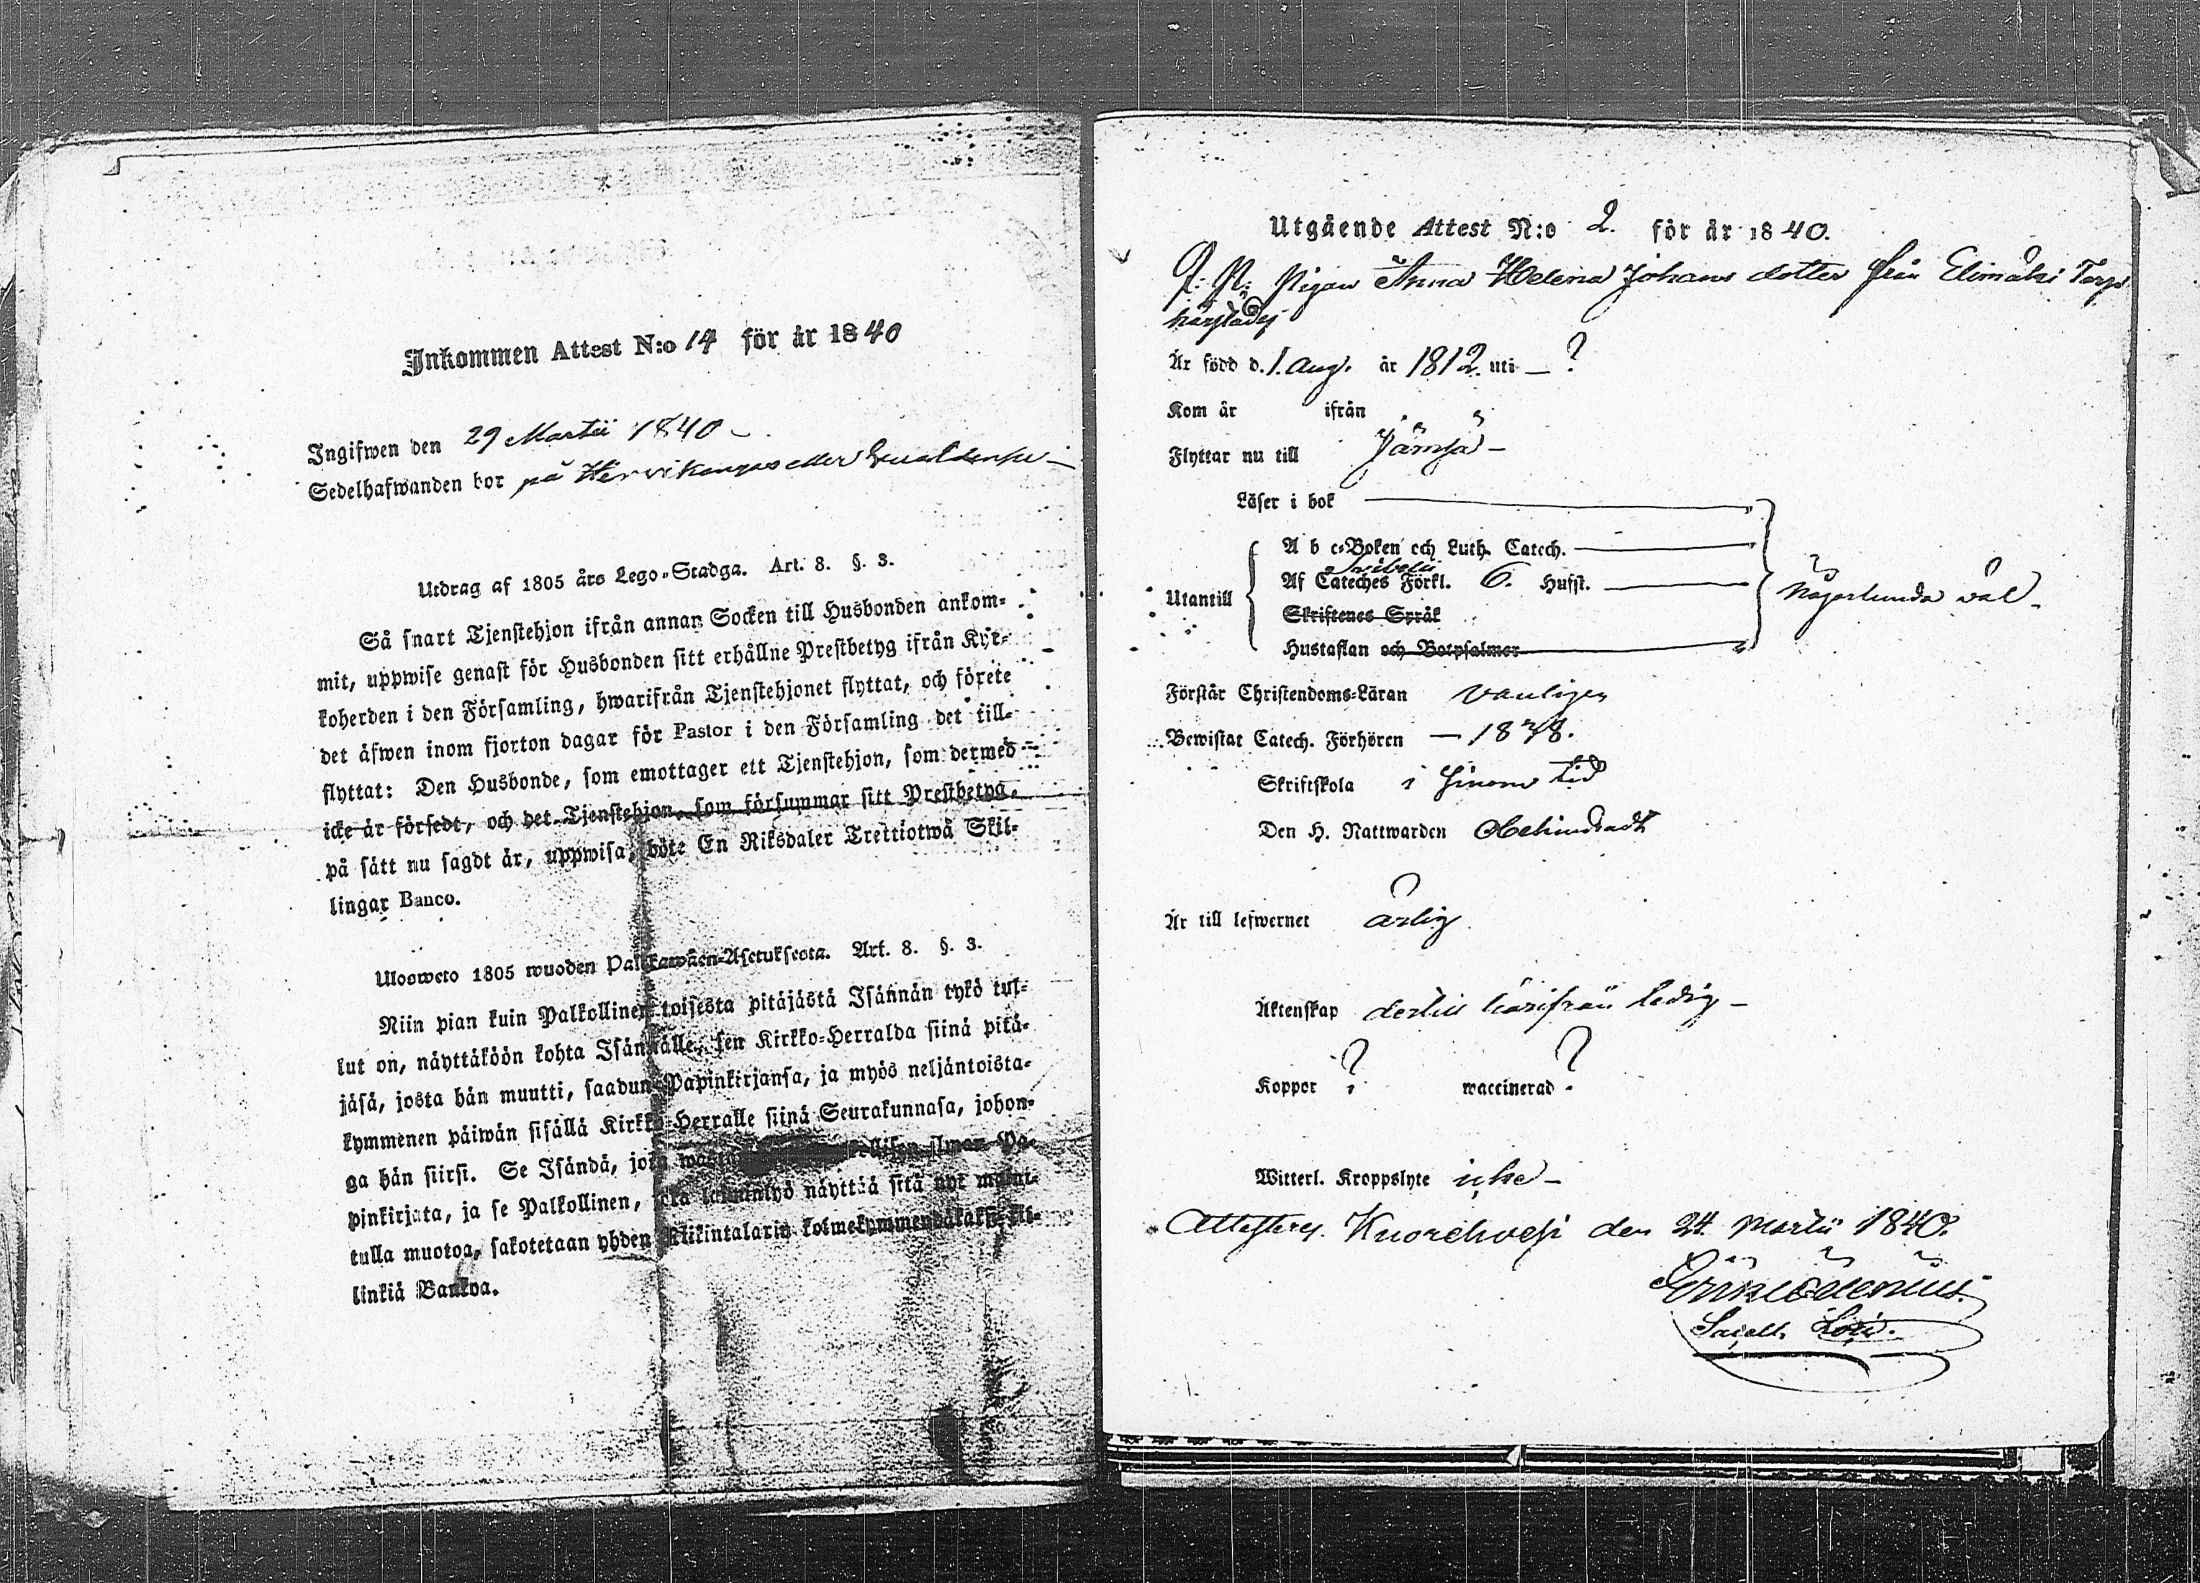 Inkommen Attest N:o 14 för år 1840
Ingifwen den 29 Martii 1840 –
Sedelhafwanden bor på Hirvikangas eller
Utdrag af 1805 års Lego-Stadga. Art. 8. §. 3.
Så snart Tjenstehjon ifrån annan Socken till Husbonden ankom-
mit, uppwise genast för Husbonden sitt erhållne Prestbetyg ifrån Kyr-
koherden i den Församling, hwarifrån Tjenstehjonet flyttat, och förete
det äfwen inom fjorton dagar för Pastor i den Församling det till-
flyttat: Den Husbonde, som emottager ett Tjenstehjon, som dermed
icke är försedt, och det Tjenstehjon, som försummar sitt Prestbetyg,
på sätt nu sagdt är, uppwisa, böte En Riksdaler Trettiotwå Skil-
lingar Banco.
Ulosweto 1805 wuoden Palkkawäen-Asetuksesta. Art. 8. §. 3.
Niin pian kuin Palkollinen toisesta pitäjästä Isännän tykö tul-
lut on, näyttäköön kohta Isännälle, sen Kirkko-Herralda siinä pitä-
jäsä, josta hän muutti, saadun Papinkirjansa, ja myös neljäntoista-
kymmenen päiwän sisällä Kirkko-Herralle siinä Seurakunnasa, johon-
ga hän siirsi. Se Isändä, joka ilman Pa-
pinkirjata, ja se Palkollinen, joka näyttää sitä nyt mainit-
tulla muotoa, sakotetaan yhden Riikintalarin kolmekymmendäkaksi kil-
linkiä Bankoa.
Utgående Attest N:o 2. för år 1840.
P: P: Pigan Anna Helena Johans dotter från Elimäki Torp
härstädes
Är född d. 1. Aug. år 1812. uti – ?
Kom år ifrån
Flyttar nu till Jämsä –
Läser i bok
A b c-Boken och Luth. Catech.
Svibelii
Af Cateches Förkl. 6. Hufst.
Utantill
Någorlunda väl.
Skriftenes Språk
Hustaflan och Botpsalmer
Förstår Christendoms-Läran vanligen
Bewistat Catech. Förhören – 1838.
Skriftskola i sinom tid
Den H. Nattwarden Obehindradt
Är till lefwernet ärlig
Äktenskap dertill härifrån ledig –
Koppor ? waccinerad ?
Witterl. Kroppslyte icke –
Attesteras. Kuorehvesi den 24. Martii 1840.